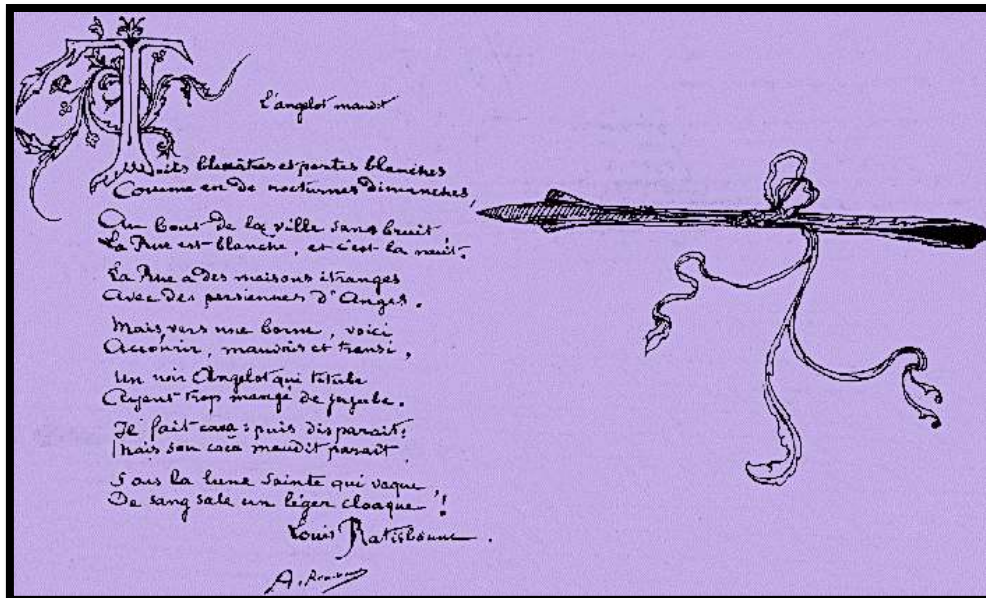 L'angelot maudit
Toits bleuâtres et portes blanches
Comme en de nocturnes dimanches,
Au bout de la ville sans bruit
La Rue est blanche, et c'est la nuit.
La Rue a des maisons étranges
Avec des persiennes d'Anges.
Mais, vers une borne, voici
Accourir, mauvais et transi,
Un noir Angelot qui titube
Ayant trop mangé de jujube.
Il fait caca : puis disparait :
Mais son caca maudit parait,
Sous la lune sainte qui vaque,
De sang sale un léger cloaque !
Louis Ratisbonne.
A. Rimbaud